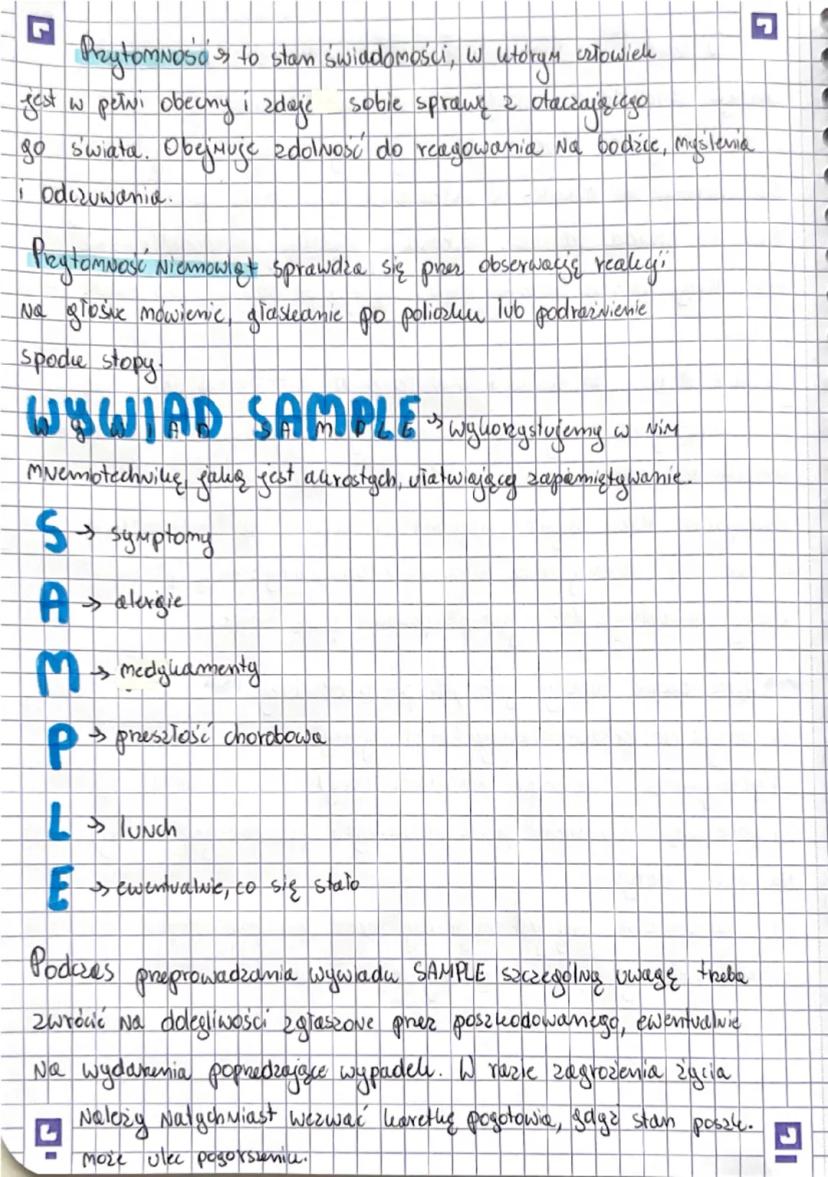 Przytomność → to stan świadomości, w którym człowiek
jest w pełni obecny i zdaje sobie sprawę z otaczającego
go świata. Obejmuje zdolność do reagowania na bodźce, myślenia
i odczuwania.
Przytomność niemowląt sprawdza się przez obserwację reakcji
na głośne mówienie, głaskanie po policzku lub podrażnienie
spodu stopy.
WYWIAD SAMPLE → wykorzystujemy w nim
mnemotechnikę, jaką jest akrostych, ułatwiający zapamiętywanie.
S → symptomy
A → alergie
M → medykamenty
P → przeszłość chorobowa
L → lunch
E → ewentualnie, co się stało
Podczas przeprowadzania wywiadu SAMPLE szczególną uwagę trzeba
zwrócić na dolegliwości zgłaszone przez poszkodowanego, ewentualnie
na wydarzenia poprzedzające wypadek. W razie zagrożenia życia
należy natychmiast wezwać karetkę pogotowia, gdyż stan poszk.
może ulec pogorszeniu.